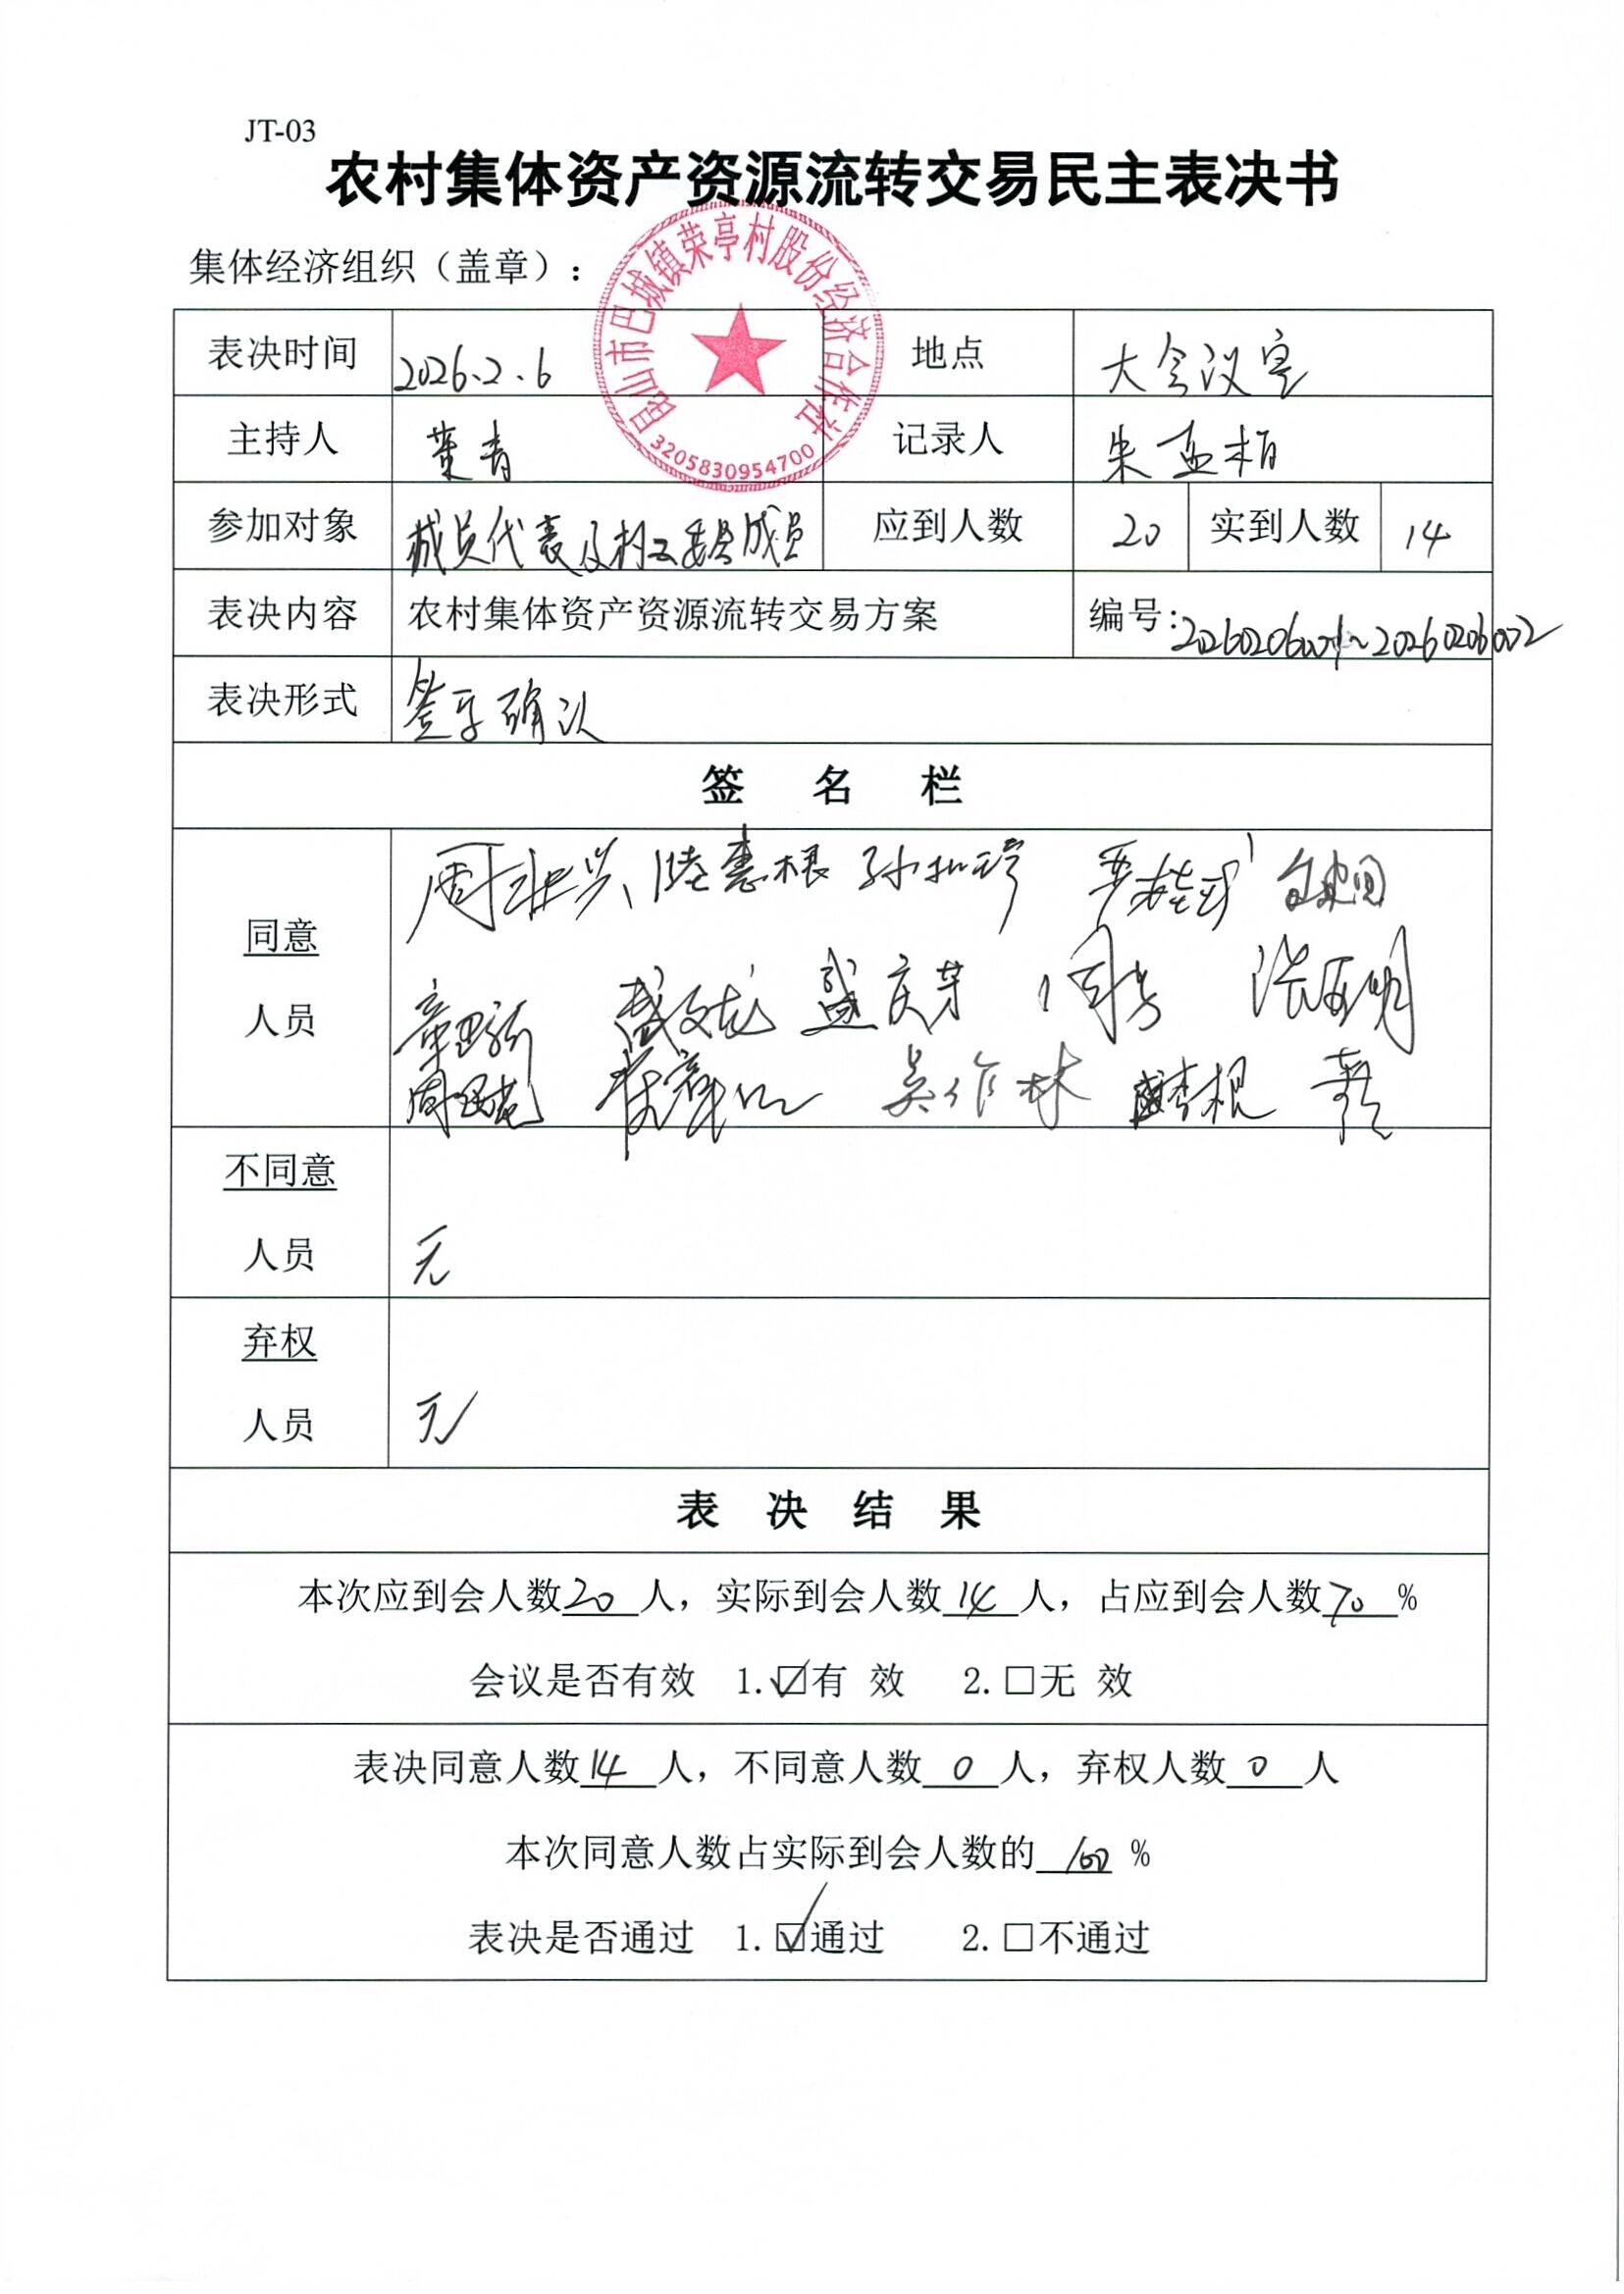 JT-03
农村集体资产资源流转交易民主表决书
集体经济组织（盖章）：
昆山市巴城镇荣亭村股份经济合作社
3205830954700
表决时间 2026.2.6 地点 大会议室
主持人 青 记录人 朱孟柏
参加对象 成员代表及村五委会成员 应到人数 20 实到人数 14
表决内容 农村集体资产资源流转交易方案 编号：20260206001~20260206002
表决形式 签字确认
签 名 栏
同意
人员
陆惠根
盛文龙 盛庆芽
吴作林
不同意
人员
无
弃权
人员
无
表 决 结 果
本次应到会人数20人，实际到会人数14人，占应到会人数70%
会议是否有效 1.☑有 效 2.□无 效
表决同意人数14人，不同意人数0人，弃权人数0人
本次同意人数占实际到会人数的100%
表决是否通过 1.☑通过 2.□不通过